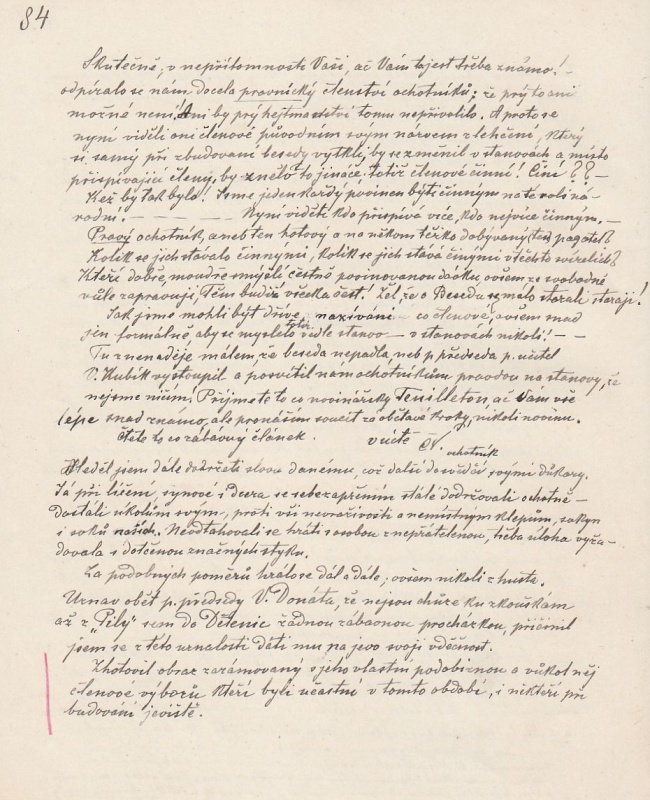 84
Skutečně, v nepřítomnosti Vaší, ač Vám to jest třeba známo! –
odpíralo se nám docela pravnický členství ochotníků; že prý to ani
možné není! Ani by prý hejtmanství tomu nepřivolilo. A proto se
nyní viděli oni členové původním svým názvem zlehčeni, který
si samý při zbudování besedy vytkli, by se změnil v stanovách a místo
přispívající členy, by znělo to jináče, totiž členové činní! Činí ? ? –
Kéž by tak bylo! Jsme jeden každý povinen býti činným na té roli ná-
rodní. – – – – Nyní viděti kdo přispívá více, kdo nejvíce činným. –
Pravý ochotník, aneb ten hotový a na někom těžko dobývaný (ten) pagatel?
Kolik se jich stávalo činnými, kolik se jich stává činými všechto
Kteří dobře, moudře smýšlí čestně povinovanou ovšem ze svobodné
vůle zapravují, Těm budiž všecka čest! Žel, že o Besedu se málo starali starají!
Jak jsme mohli být dříve nazíváni – co členové, ovšem snad
jen formálně, aby se myslelo totiž vedle stanov – v stanovách nikoli! – –
Tu z nenaděje, málem že beseda nepadla, neb p. předseda p. učitel
V. Kubík vystoupil a posvítil nám ochotníkům pravdou na stanovy, že
nejsme ničím. Přijměte to co novinářský Feuilleton, ač Vám vše
lépe snad známo, ale pronáším soucit za obětavé kroky, nikoli novinu.
Čtěte to co zábavný článek. v úctě N.
ochotník
Hleděl jsem dále dodržeti slovu danému, což další dosvědčí svými důkazy.
Já při líčení, synové i dcera se sebezapřením stále dodržovali ochotně –
dostáli úkolům svým, proti vší nevraživosti a nemístným klepům, sokyn
i soků našich. Neodtahovali se hráti s osobou z nepřátelenou, třeba úloha vyža-
dovala i dotčenou značných styků.
Za podobných poměrů hrálo se dál a dále; ovšem nikoli z husta.
Uznav oběť p. předsedy V. Donáta, že nejsou chůze ku zkouškám
až z „Pily" sem do Dětenic žádnou zábavnou procházkou, přičinil
jsem se z této uznalosti dáti mu na jevo svoji vděčnost.
Zhotovil obraz zarámovaný s jeho vlastní podobiznou a vůkol něj
členové výborů kteří byli účastni v tomto období, i někteří při
budování jeviště.